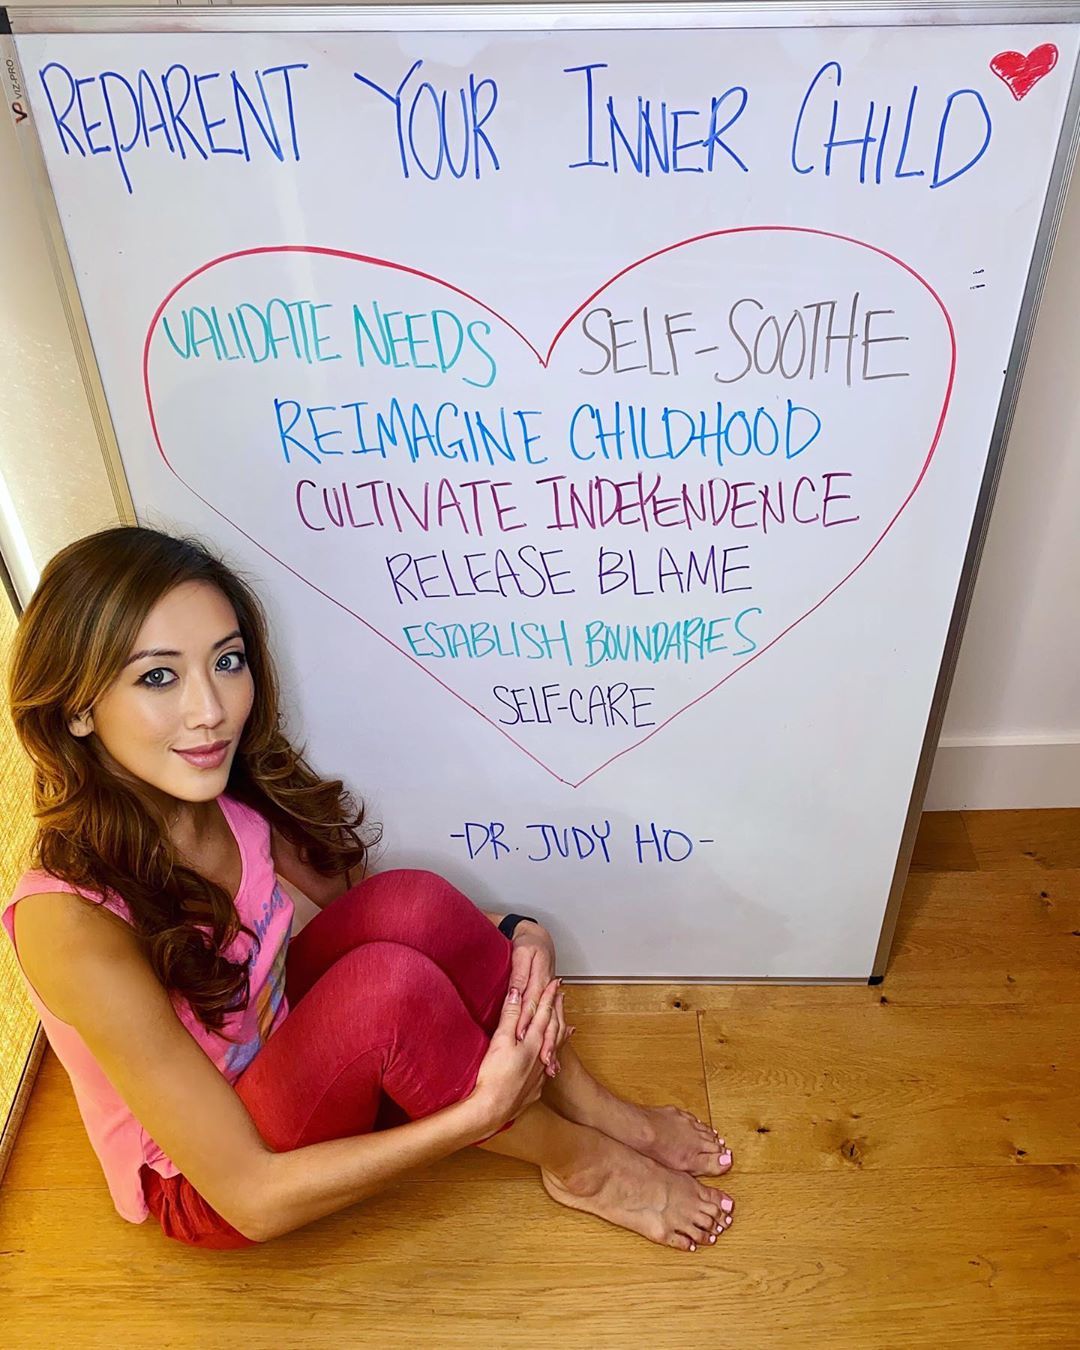 REPARENT YOUR INNER CHILD
VALIDATE NEEDS SELF-SOOTHE
REIMAGINE CHILDHOOD
CULTIVATE INDEPENDENCE
RELEASE BLAME
ESTABLISH BOUNDARIES
SELF-CARE
-DR. JUDY HO-
VIZ-PRO